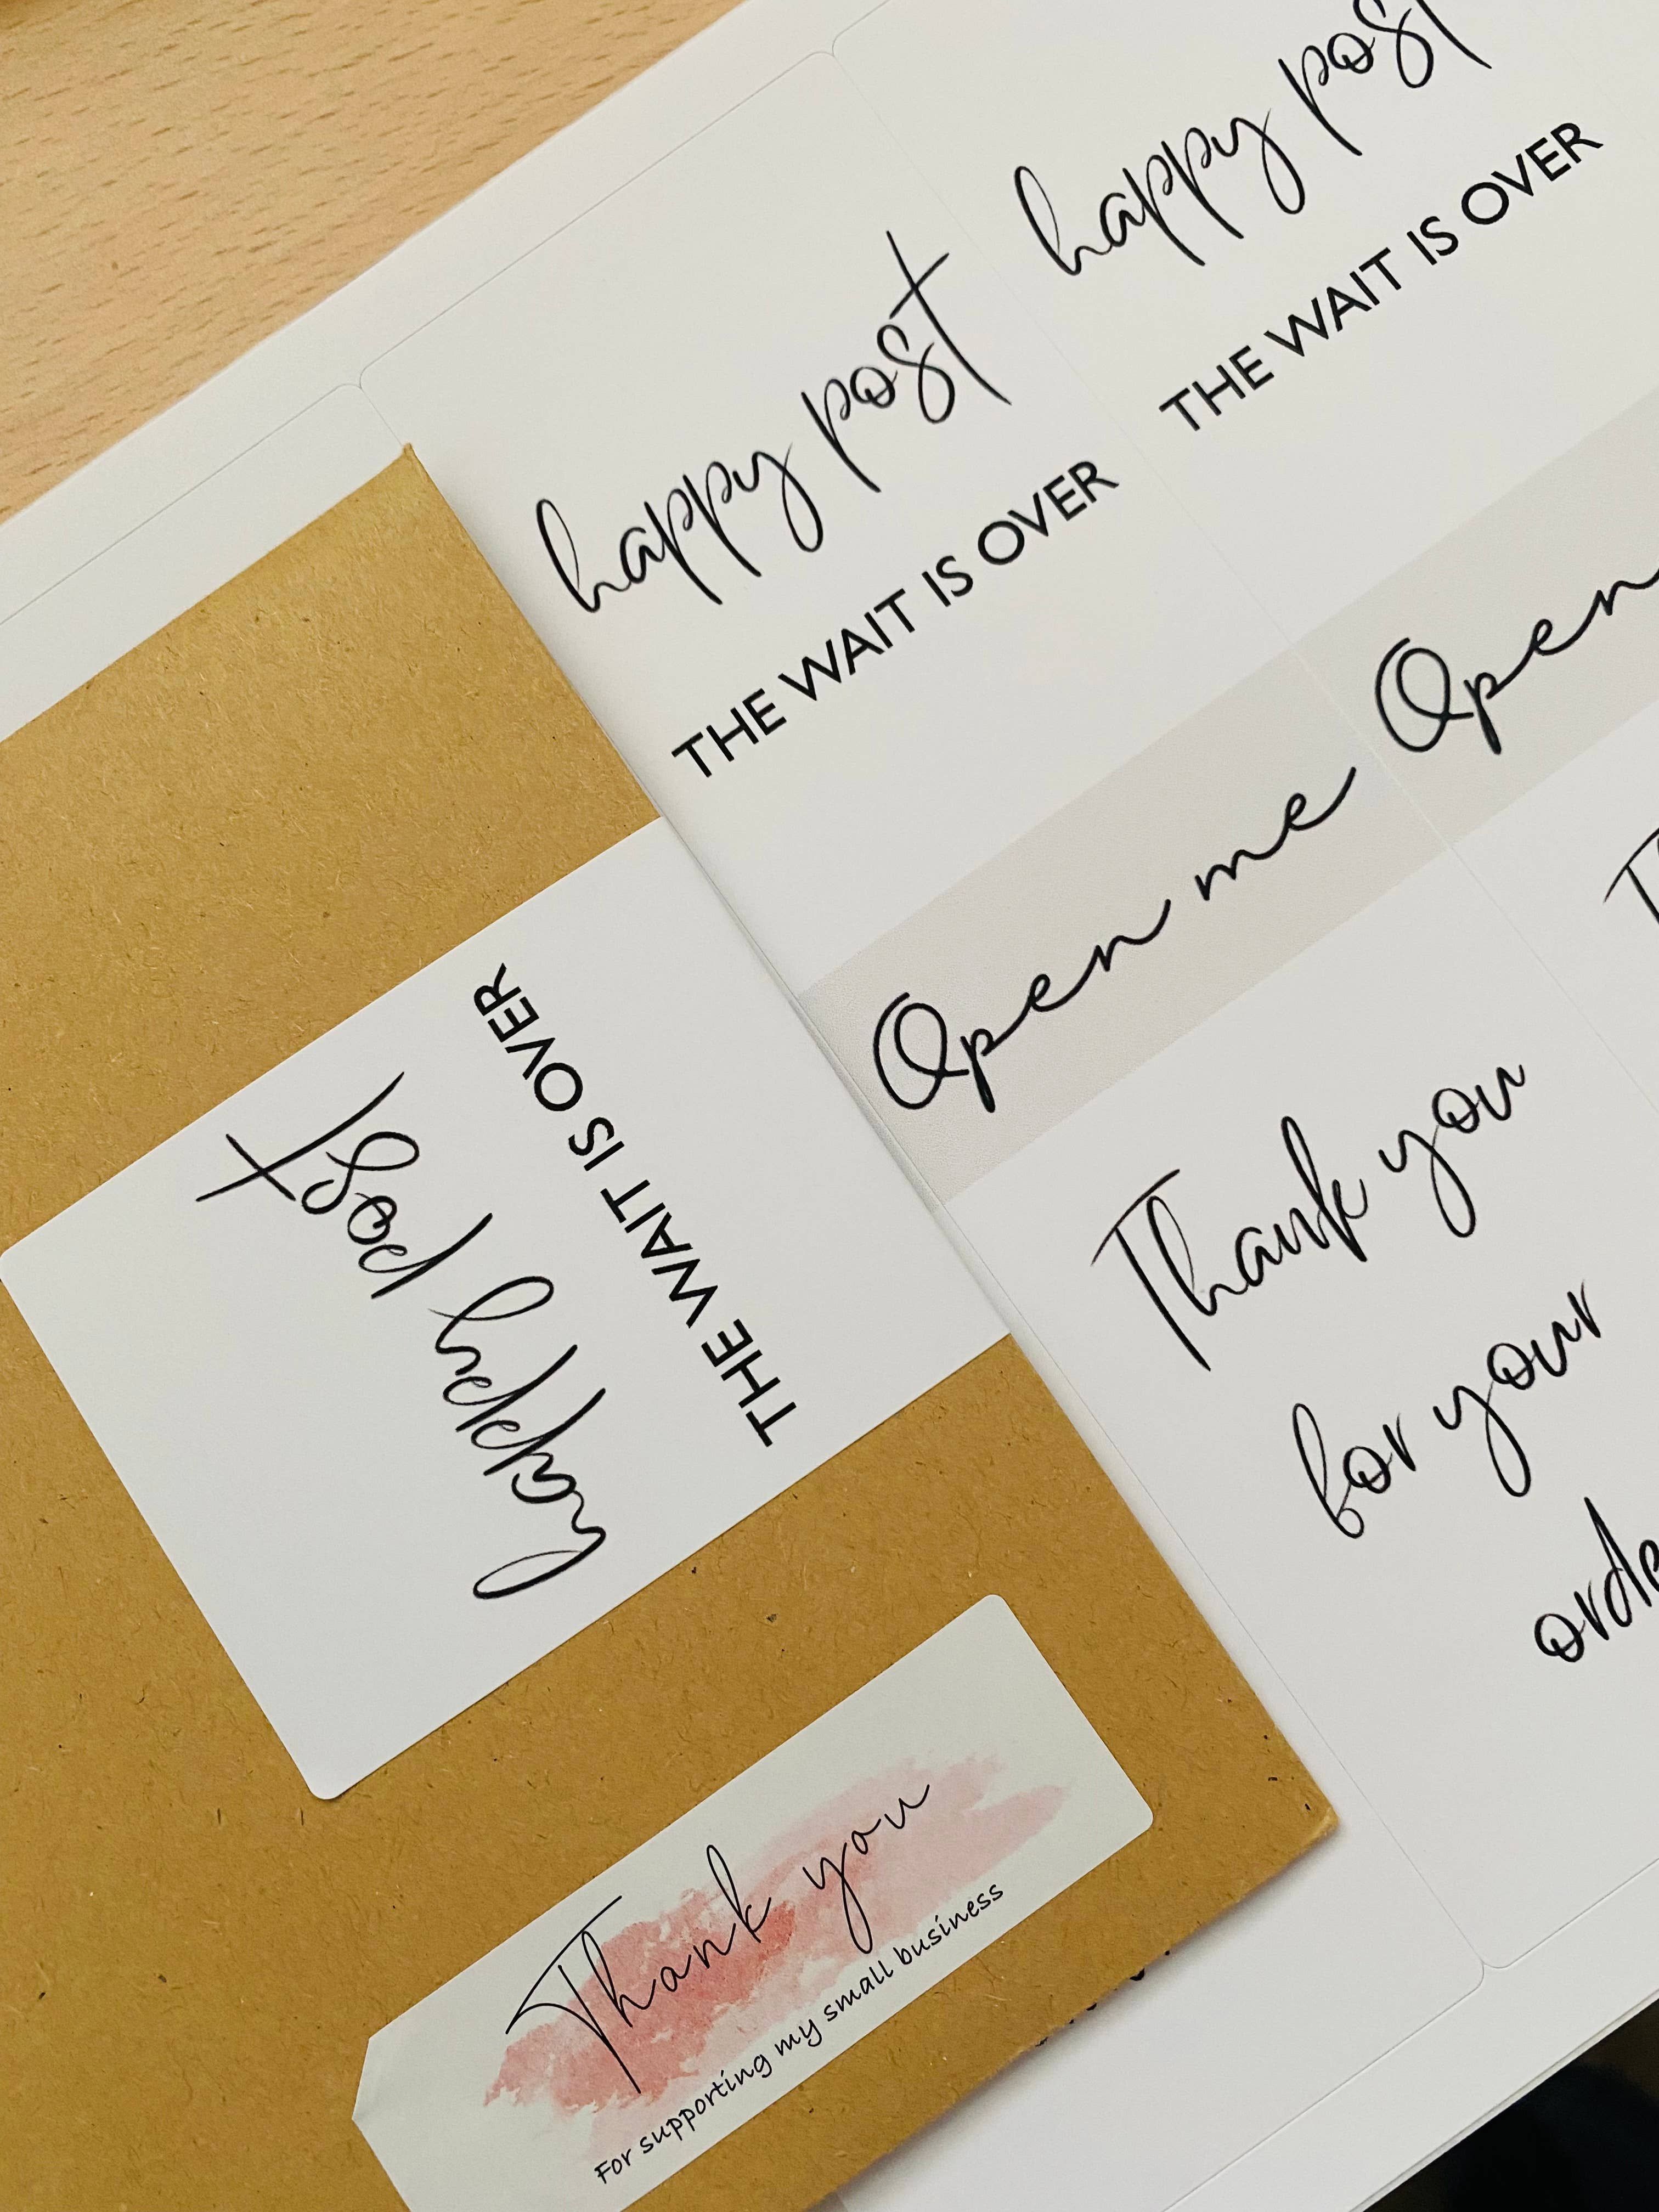 happy post
THE WAIT IS OVER
Open me
Thank you
for your
happy post
THE WAIT IS OVER
Open
happy post
THE WAIT IS OVER
Thank you
For supporting my small business